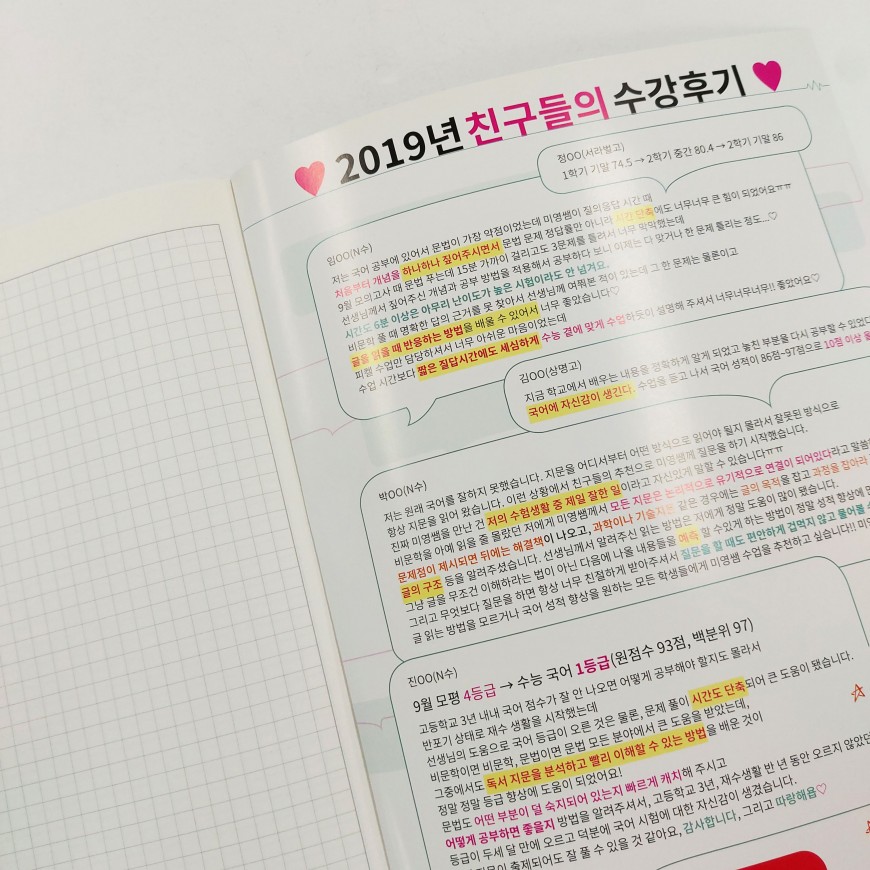 2019년 친구들의 수강후기
정OO(서라벌고)
1학기 기말 74.5 → 2학기 중간 80.4 → 2학기 기말 86
임OO(N수)
저는 국어 공부에 있어서 문법이 가장 약점이었는데 미영쌤이 질의응답 시간 때
처음부터 개념을 하나하나 짚어주시면서 문법 문제 정답률만 아니라 시간 단축에도 너무너무 큰 힘이 되었어요ㅠㅠ
9월 모의고사 때 문법 푸는데 15분 가까이 걸리고도 3문제를 틀려서 너무 막막했는데
선생님께서 짚어주신 개념과 공부 방법을 적용해서 공부하다 보니 이제는 다 맞거나 한 문제 틀리는 정도...♡
시간도 6분 이상은 아무리 난이도가 높은 시험이라도 안 넘겨요.
비문학 풀 때 명확한 답의 근거를 못 찾아서 선생님께 여쭤본 적이 있는데 그 한 문제는 물론이고
글을 읽을 때 반응하는 방법을 배울 수 있어서 너무 좋았습니다♡
피켈 수업만 담당하셔서 너무 아쉬운 마음이었는데
수업 시간보다 짧은 질답시간에도 세심하게 수능 결에 맞게 수업하듯이 설명해 주셔서 너무너무너무!! 좋았어요♡
김OO(상명고)
지금 학교에서 배우는 내용을 정확하게 알게 되었고 놓친 부분을 다시 공부할 수 있었다
국어에 자신감이 생긴다. 수업을 듣고 나서 국어 성적이 86점~97점으로 10점 이상
박OO(N수)
저는 원래 국어를 잘하지 못했습니다. 지문을 어디서부터 어떤 방식으로 읽어야 될지 몰라서 잘못된 방식으로
항상 지문을 읽어 왔습니다. 이런 상황에서 친구들의 추천으로 미영쌤께 질문을 하기 시작했습니다.
진짜 미영쌤을 만난 건 저의 수험생활 중 제일 잘한 일이라고 자신있게 말할 수 있습니다ㅠㅠ
비문학을 아예 읽을 줄 몰랐던 저에게 미영쌤께서 모든 지문은 논리적으로 유기적으로 연결이 되어있다라고
문제점이 제시되면 뒤에는 해결책이 나오고, 과학이나 기술지문 같은 경우에는 글의 목적을 잡고 과정을 잡아라
글의 구조 등을 알려주셨습니다. 선생님께서 알려주신 읽는 방법은 저에게 정말 도움이 많이 됐습니다.
그냥 글을 무조건 이해하라는 법이 아닌 다음에 나올 내용들을 예측 할 수있게 하는 방법이 정말 성적 향상에
그리고 무엇보다 질문을 하면 항상 너무 친절하게 받아주셔서 질문을 할 때도 편안하게 겁먹지 않고 물어볼 수
글 읽는 방법을 모르거나 국어 성적 향상을 원하는 모든 학생들에게 미영쌤 수업을 추천하고 싶습니다!!
진OO(N수)
9월 모평 4등급 → 수능 국어 1등급(원점수 93점, 백분위 97)
고등학교 3년 내내 국어 점수가 잘 안 나오면 어떻게 공부해야 할지도 몰라서
반포기 상태로 재수 생활을 시작했는데
선생님의 도움으로 국어 등급이 오른 것은 물론, 문제 풀이 시간도 단축되어 큰 도움이 됐습니다.
비문학이면 비문학, 문법이면 문법 모든 분야에서 큰 도움을 받았는데,
그중에서도 독서 지문을 분석하고 빨리 이해할 수 있는 방법을 배운 것이
정말 정말 등급 향상에 도움이 되었어요!
문법도 어떤 부분이 덜 숙지되어 있는지 빠르게 캐치해 주시고
어떻게 공부하면 좋을지 방법을 알려주셔서, 고등학교 3년, 재수생활 반 년 동안 오르지 않았던
등급이 두세 달 만에 오르고 덕분에 국어 시험에 대한 자신감이 생겼습니다.
지문이 출제되어도 잘 풀 수 있을 것 같아요, 감사합니다, 그리고 따랑해욤♡